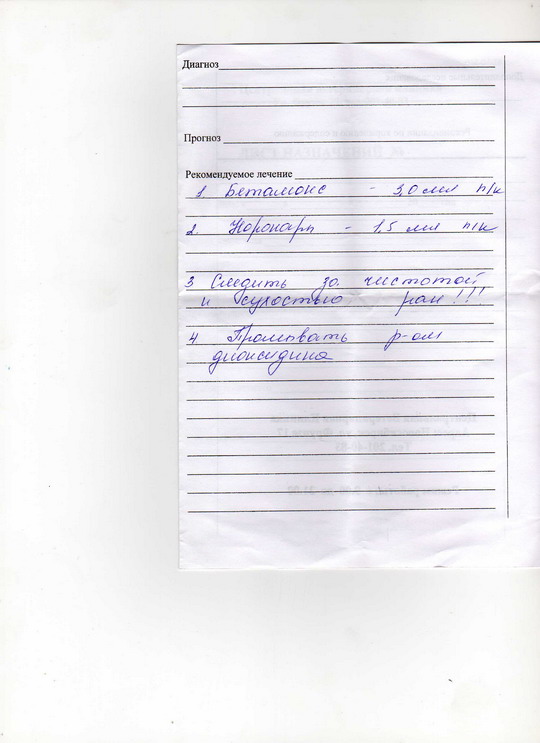 Диагноз
Прогноз
Рекомендуемое лечение
1. Бетамокс - 3,0 мл п/к
2. - 1,5 мл п/к
3 Следить за чистотой
и сухостью ран!!!
4 Промывать р-ом
диоксидина